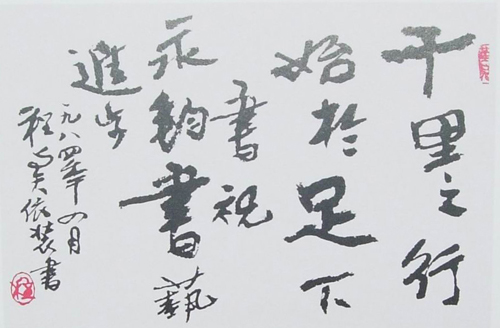 千里之行
始於足下
書祝
永鈞書藝
進步
一九八四年四月
程與天依裝書